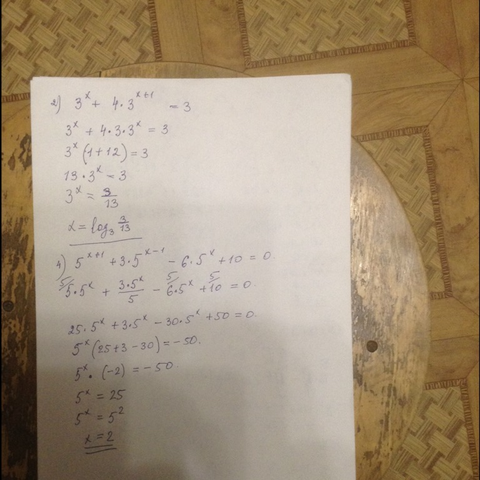 2) 3^x + 4·3^{x+1} = 3
3^x + 4·3·3^x = 3
3^x (1+12) = 3
13·3^x = 3
3^x = 3/13
x = log_3 3/13
4) 5^{x+1} + 3·5^{x-1} - 6·5^x + 10 = 0.
5/ 5·5^x + 3·5^x/5 - 5/ 6·5^x + 5/ 10 = 0.
25·5^x + 3·5^x - 30·5^x + 50 = 0.
5^x (25+3-30) = -50.
5^x · (-2) = -50
5^x = 25
5^x = 5^2
x = 2